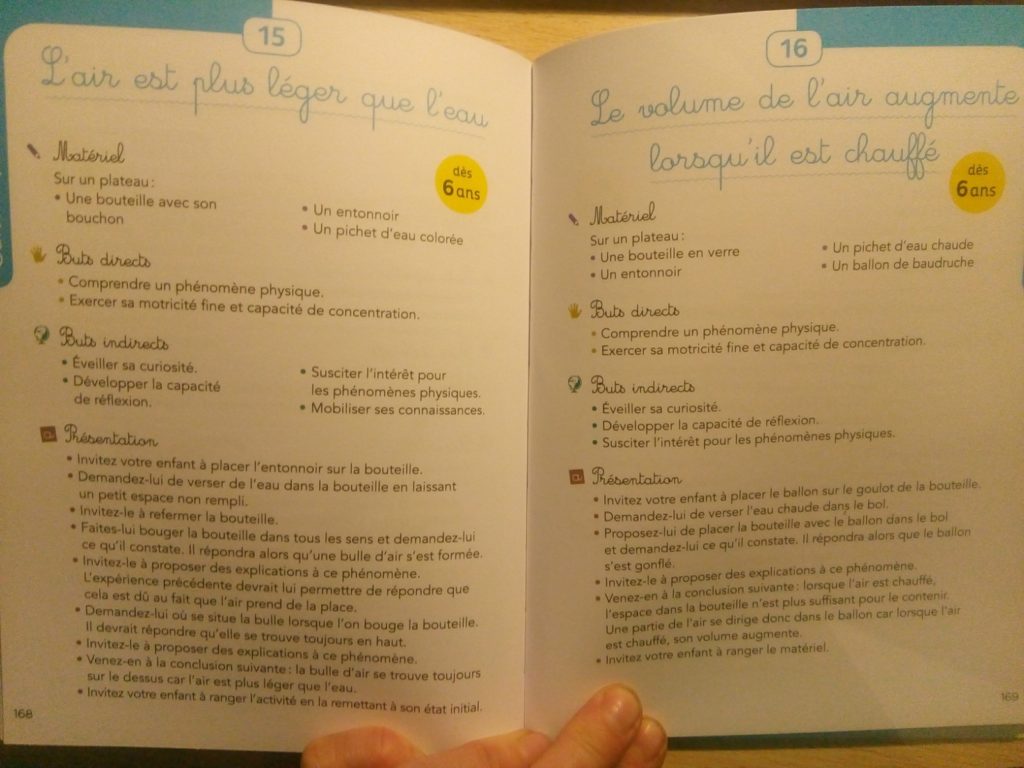 15
L'air est plus léger que l'eau
Matériel
dès
6 ans
Sur un plateau :
• Une bouteille avec son
bouchon
• Un entonnoir
• Un pichet d'eau colorée
Buts directs
• Comprendre un phénomène physique.
• Exercer sa motricité fine et capacité de concentration.
Buts indirects
• Éveiller sa curiosité.
• Développer la capacité
de réflexion.
• Susciter l'intérêt pour
les phénomènes physiques.
• Mobiliser ses connaissances.
Présentation
• Invitez votre enfant à placer l'entonnoir sur la bouteille.
• Demandez-lui de verser de l'eau dans la bouteille en laissant
un petit espace non rempli.
• Invitez-le à refermer la bouteille.
• Faites-lui bouger la bouteille dans tous les sens et demandez-lui
ce qu'il constate. Il répondra alors qu'une bulle d'air s'est formée.
• Invitez-le à proposer des explications à ce phénomène.
L'expérience précédente devrait lui permettre de répondre que
cela est dû au fait que l'air prend de la place.
• Demandez-lui où se situe la bulle lorsque l'on bouge la bouteille.
Il devrait répondre qu'elle se trouve toujours en haut.
• Invitez-le à proposer des explications à ce phénomène.
• Venez-en à la conclusion suivante : la bulle d'air se trouve toujours
sur le dessus car l'air est plus léger que l'eau.
• Invitez votre enfant à ranger l'activité en la remettant à son état initial.
168
16
Le volume de l'air augmente
lorsqu'il est chauffé
dès
6 ans
Matériel
Sur un plateau :
• Une bouteille en verre
• Un entonnoir
• Un pichet d'eau chaude
• Un ballon de baudruche
Buts directs
• Comprendre un phénomène physique.
• Exercer sa motricité fine et capacité de concentration.
Buts indirects
• Éveiller sa curiosité.
• Développer la capacité de réflexion.
• Susciter l'intérêt pour les phénomènes physiques.
Présentation
• Invitez votre enfant à placer le ballon sur le goulot de la bouteille.
• Demandez-lui de verser l'eau chaude dans le bol.
• Proposez-lui de placer la bouteille avec le ballon dans le bol
et demandez-lui ce qu'il constate. Il répondra alors que le ballon
s'est gonflé.
• Invitez-le à proposer des explications à ce phénomène.
• Venez-en à la conclusion suivante : lorsque l'air est chauffé,
l'espace dans la bouteille n'est plus suffisant pour le contenir.
Une partie de l'air se dirige donc dans le ballon car lorsque l'air
est chauffé, son volume augmente.
• Invitez votre enfant à ranger le matériel.
169